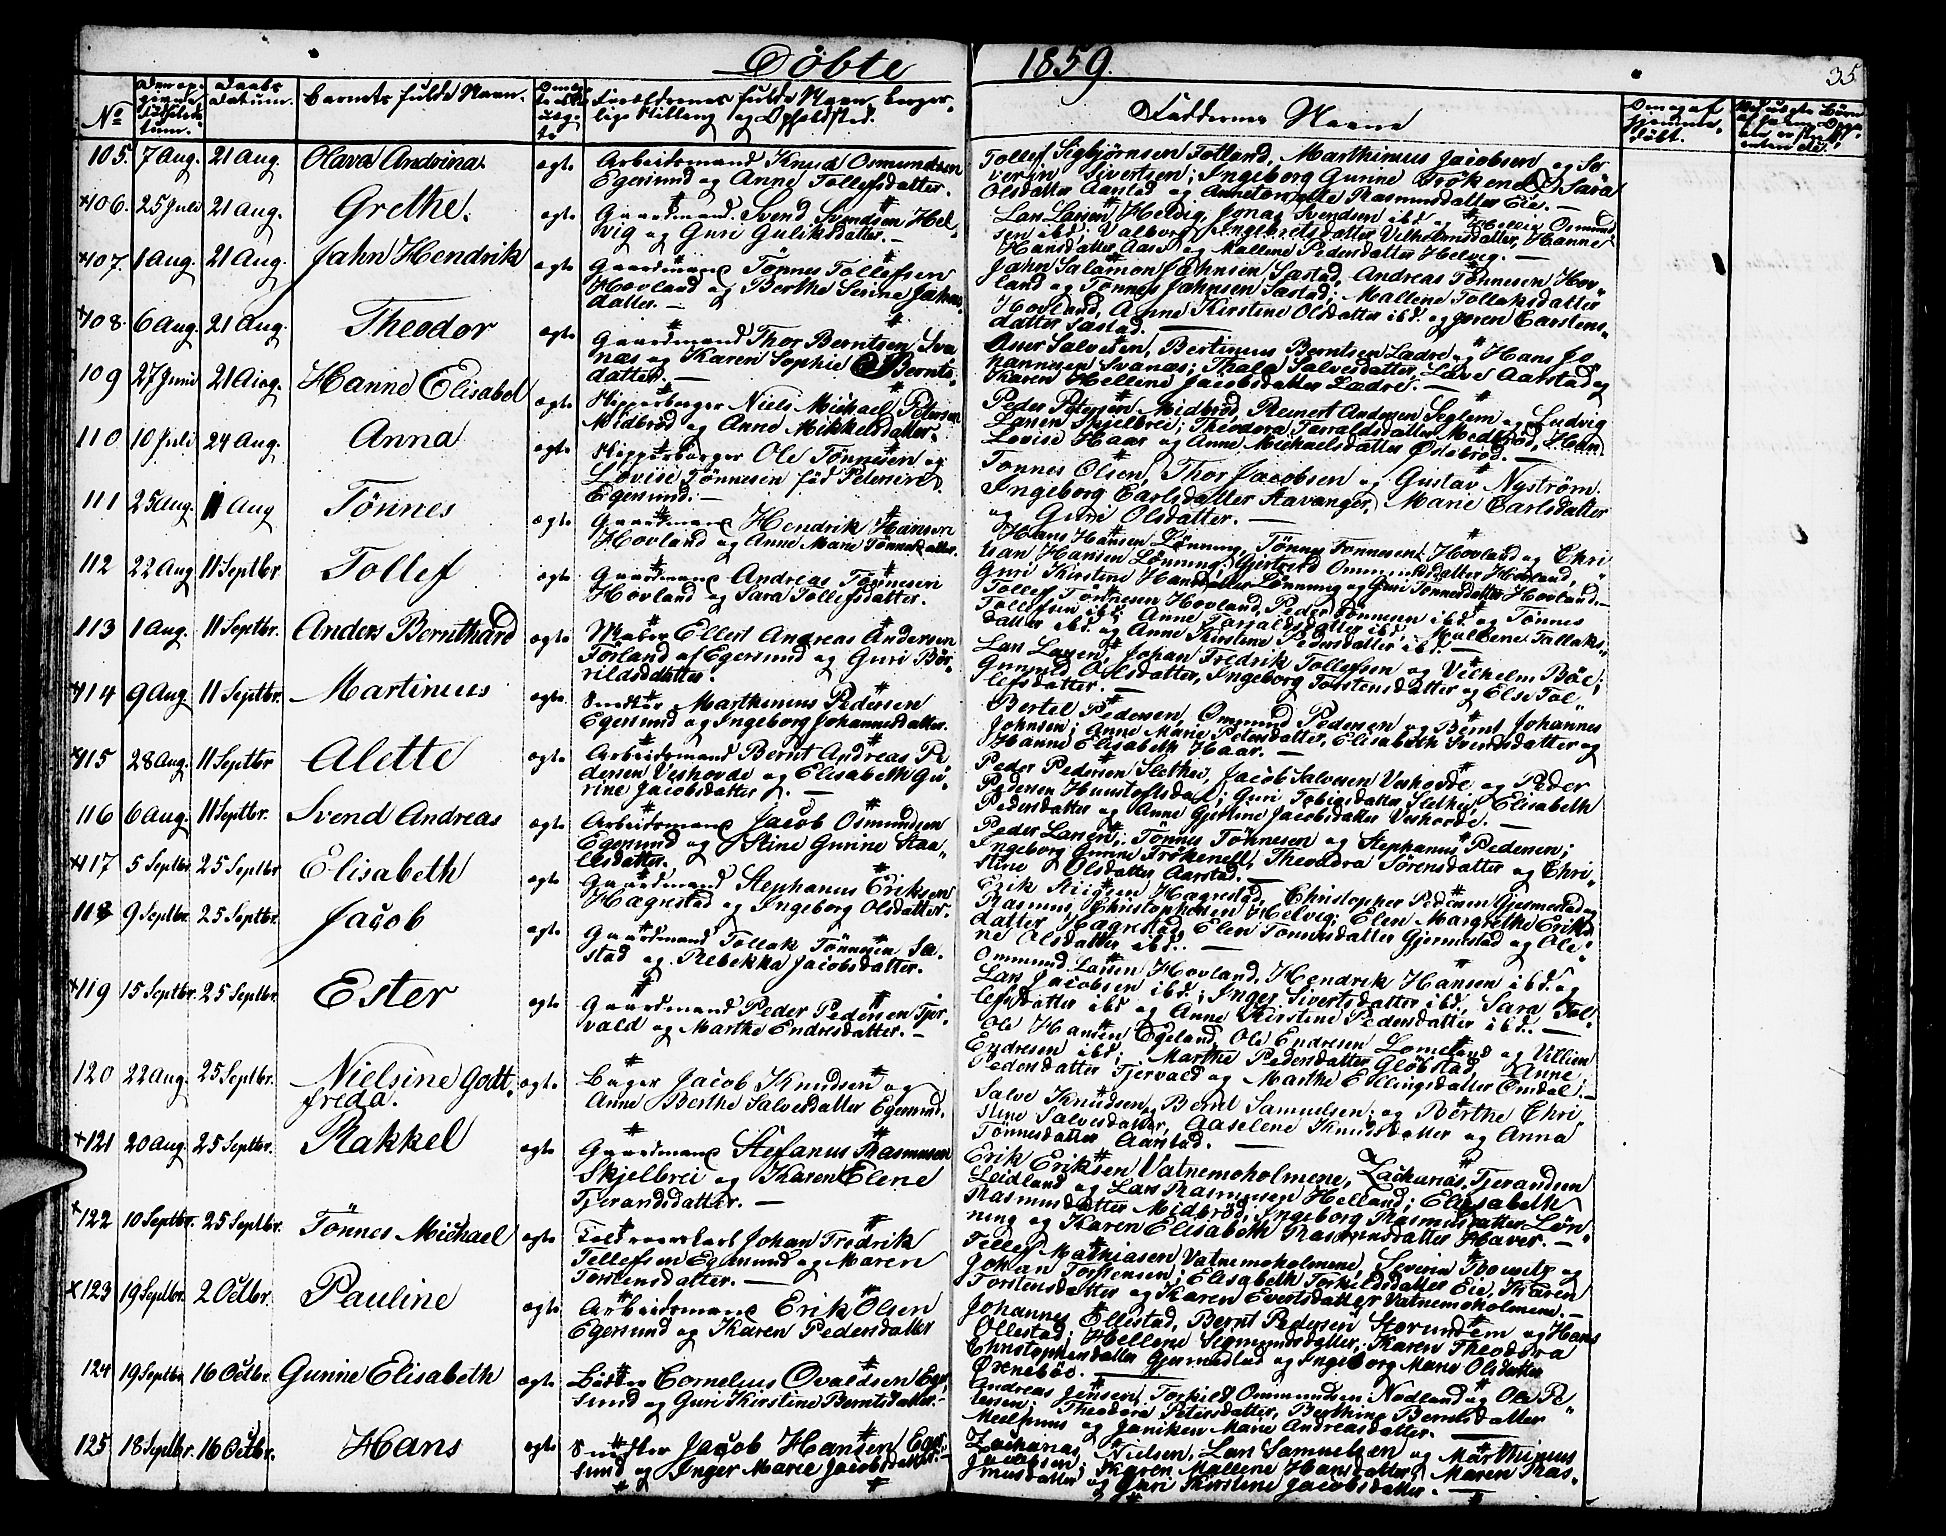 Døbte 1859. 35
No
Barnets fulde Navn.
Foreldrenes fulde Navn, borger-
lige Stilling og Opholdsted.
Faddernes Navne
105. 7 Aug. 21 Aug. Olava Andrina. ægte Arbeidsmand Knud Osmundsen
Egersund og Anne Tollefsdatter.
Tollef Sigbjørnsen Totland, Marthinus Jacobsen og Se-
verin Sivertsen; Ingeborg Gurine Frökene Sara
Olsdatter Aarstad og Rasmusdatter Eie.
106. 25 Juli 21 Aug. Grethe. ægte Gaardmand Svend Svendsen Hel-
vig og Guri Guliksdatter.
Lars Larsen Helvig, Jonas Svendsen ibd. og Osmund-
sen ibd; Valborg Ingebretsdatter Vilhelmsdatter, Hanne
Hansdatter Aase og Mallene Pedersdatter Helvig.
107. 1 Aug. 21 Aug. Jahn Hendrik ægte Gaardmand Tønnes Tollefsen
Hovland og Berthe Serine Jahns-
datter.
Jahn Salamon Jahnsen Sæstad, Andreas Tønnesen Hov-
land og Tønnes Jahnsen Sæstad; Mallene Tollaksdatter
Hovland, Anne Kirstine Olsdatter ibd. og Joren Carstens-
datter Sæstad.
108. 6 Aug. 21 Aug. Theodor ægte Gaardmand Thor Berntsen Sva-
næs og Karen Sophie Bernts-
datter.
Osur Salvesen, Bertinius Berntsen Ladre og Hans Jo-
hannesen Svanæs; Thala Salvesdatter, Lave Aarstad og
Karen Hellene Jacobsdatter Lædre.
109 27 Juni 21 Aug. Hanne Elisabet ægte Skipperborger Niels Michael Petersen
Midbrød og Anne Mikkelsdatter.
Peder Petersen Midbrød, Reinert Andersen Seglem og Ludvig
Larsen Skjelbrei; Theodora Tarraldsdatter Medbrød, Hanne
Lovise Haar og Anne Michaelsdatter Østebrød.
110 10 Juli 24 Aug. Anna ægte Skipperborger Ole Tønnesen og
Lovise Tønnesen fød Petersen
Egersund.
Tønnes Olsen, Thor Jacobsen og Gustav Nyström.
Ingeborg Carlsdatter Stavanger, Marie Carlsdatter
og Guri Olsdatter.
111 25 Aug. Aug Tønnes ægte Gaardmand Hendrik Hansen
Hovland og Anne Marie Tønnesdatter.
Hans Hansen Lønning, Tønnes Tønnesen Hovland og Chri-
stian Hansen Lønning; Gjertrud Ommundsdatter Hovland,
Guri Kirstine Hansdatter Lønning og Guri Tønnesdatter Hovland.
112 22 Aug 11 Septbr Tollef ægte Gaardmand Andreas Tønnesen
Hovland og Sara Tollefsdatter.
Tollef Tønnesen Hovland, Peder Tønnesen ibd. og Tønnes
Tollefsen ibd; Anne Tarraldsdatter ibd, Mallene Tollaks-
datter ibd. og Anne Kirstine Pedersdatter ibd.
113 1 Aug. 11 Septbr. Anders Bernthard ægte Maler Ellert Andreas Andersen
Førland af Egersund og Guri Bør-
rildsdatter.
Lars Larsen, Johan Fredrik Tollefsen og Vilhelm Bøe;
Gunnild Olsdatter, Ingeborg Torstensdatter og Else Tol-
lefsdatter.
114 9 Aug 11 Septbr. Martinius ægte Snedker Marthinius Pedersen
Egersund og Ingeborg Johannesdatter.
Bertel Pedersen, Ommund Pedersen og Bernt Johannes
Johnsen; Anne Marie Petersdatter, Elisabeth Svendsdatter og
Hanne Elisabeth Haar.
115 28 Aug. 11 Septbr Alette ægte Arbeidsmand Bernt Andreas Pe-
dersen Veshovde og Elisabeth Gu-
rine Jacobsdatter.
Peder Pedersen Slethei, Jacob Salvesen Veshovde og Peder
Pedersen Humstoftsdal; Guri Tobiasdatter Slethei, Elisabeth
Pedersdatter og Anne Gurine Jacobsdatter Veshovde.
116 6 Aug. 11 Septbr. Svend Andreas ægte Arbeidsmand Jacob Osmundsen
Egersund og Stine Gurine Staa-
lesdatter.
Peder Larsen, Tønnes Tønnesen og Stephanus Pedersen;
Ingeborg Gurine Frökenell, Theodora Sørensdatter og Chri-
stine Olsdatter Aarstad.
117 5 Septbr 25 Septbr Elisabeth ægte Gaardmand Stephanus Eriksen
Hægrestad og Ingeborg Olsdatter.
Erik Stigsen Hægrestad, Christopher Pedersen Gjermestad og
Rasmus Christophersen Helvig; Elen Margrethe Eriks-
datter Hægrestad, Elen Tønnesdatter Gjermestad og Ole-
ne Olsdatter ibd.
118 9 Septbr. 25 Septbr. Jacob ægte Gaardmand Tollak Tønnesen Sæ-
stad og Rebekka Jacobsdatter.
Ommund Larsen Hovland, Hendrik Hansen ibd. og
Lars Jacobsen ibd; Inger Sivertsdatter ibd, Sara Tol-
lefsdatter ibd og Anne Kirstine Pedersdatter ibd.
119 15 Septbr. 25 Septbr. Ester ægte Gaardmand Peder Pedersen Tjør-
vald og Marthe Endresdatter.
Ole Hansen Egeland, Ole Endresen Lomeland og Villum
Endresen ibd; Marthe Pedersdatter Gløbstad, Anne
Pedersdatter Tjervald og Marthe Ellingsdatter Omdal.
120 22 Aug. 25 Septbr. Nielsine Godt-
freda. ægte Bager Jacob Knudsen og
Anne Berthe Salvesdatter Egersund.
Salve Knudsen, Bernt Samuelsen og Berthe Chri-
stine Salvesdatter, Aaselene Knudsdatter og Anna
Tønnesdatter Aarstad.
121 20 Aug. 25 Septbr. Rakkel ægte Gaardmand Stefanus Rasmussen
Skjelbrei og Karen Elene
Tjerandsdatter.
Erik Eriksen Vatnemoholmene, Zacharias Tjerandsen
Leidland og Lars Rasmussen Helland; Elisabeth
Rasmusdatter Midbrød, Ingeborg Rasmusdatter Løn-
ning og Karen Elisabeth Rasmusdatter Haver.
122 10 Septbr. 25 Septbr. Tönnes Michael ægte Johan Fredrik
Tellefsen Egersund og Maren
Torstensdatter.
Tellef Mathiasen Vatnemoholmene, Severin Thomsen og
Johan Torstensen; Elisabeth Torkildsdatter Eie, Karen
Torstensdatter og Karen Evertsdatter Vatnemoholmene.
123 19 Septbr. 2 Octbr. Pauline ægte Arbeidsmand Erik Olsen
Egersund og Karen Pedersdatter
Johannes Ellestad, Bernt Pedersen Storunden og Hans
Ollestad; Hellene Sigmundsdatter, Karen Theodora
Christophersdatter Gjermestad og Ingeborg Marie Olsdatter
Ørenebøe.
124 19 Septbr 16 Octbr. Gurine Elisabeth ægte Bødker Cornelius Ovaldsen Eger-
sund og Guri Kirstine Berntsdatter.
Andreas Jensen, Torkild Ommundsen Nodland og Ole Pe-
tersen; Theodora Petersdatter, Berthine Berntsdatter
og Janiken Marie Andreasdatter.
125 18 Septbr. 16 Octbr. Hans ægte Jacob Hansen Eger-
sund og Inger Marie Jacobsdatter.
Zacharias Nielsen, Lars Samuelsen og Marthinius
Jacobsen; Karen Mallene Hansdatter, Maren Ras-
musdatter og Guri Kirstine Jacobsdatter.